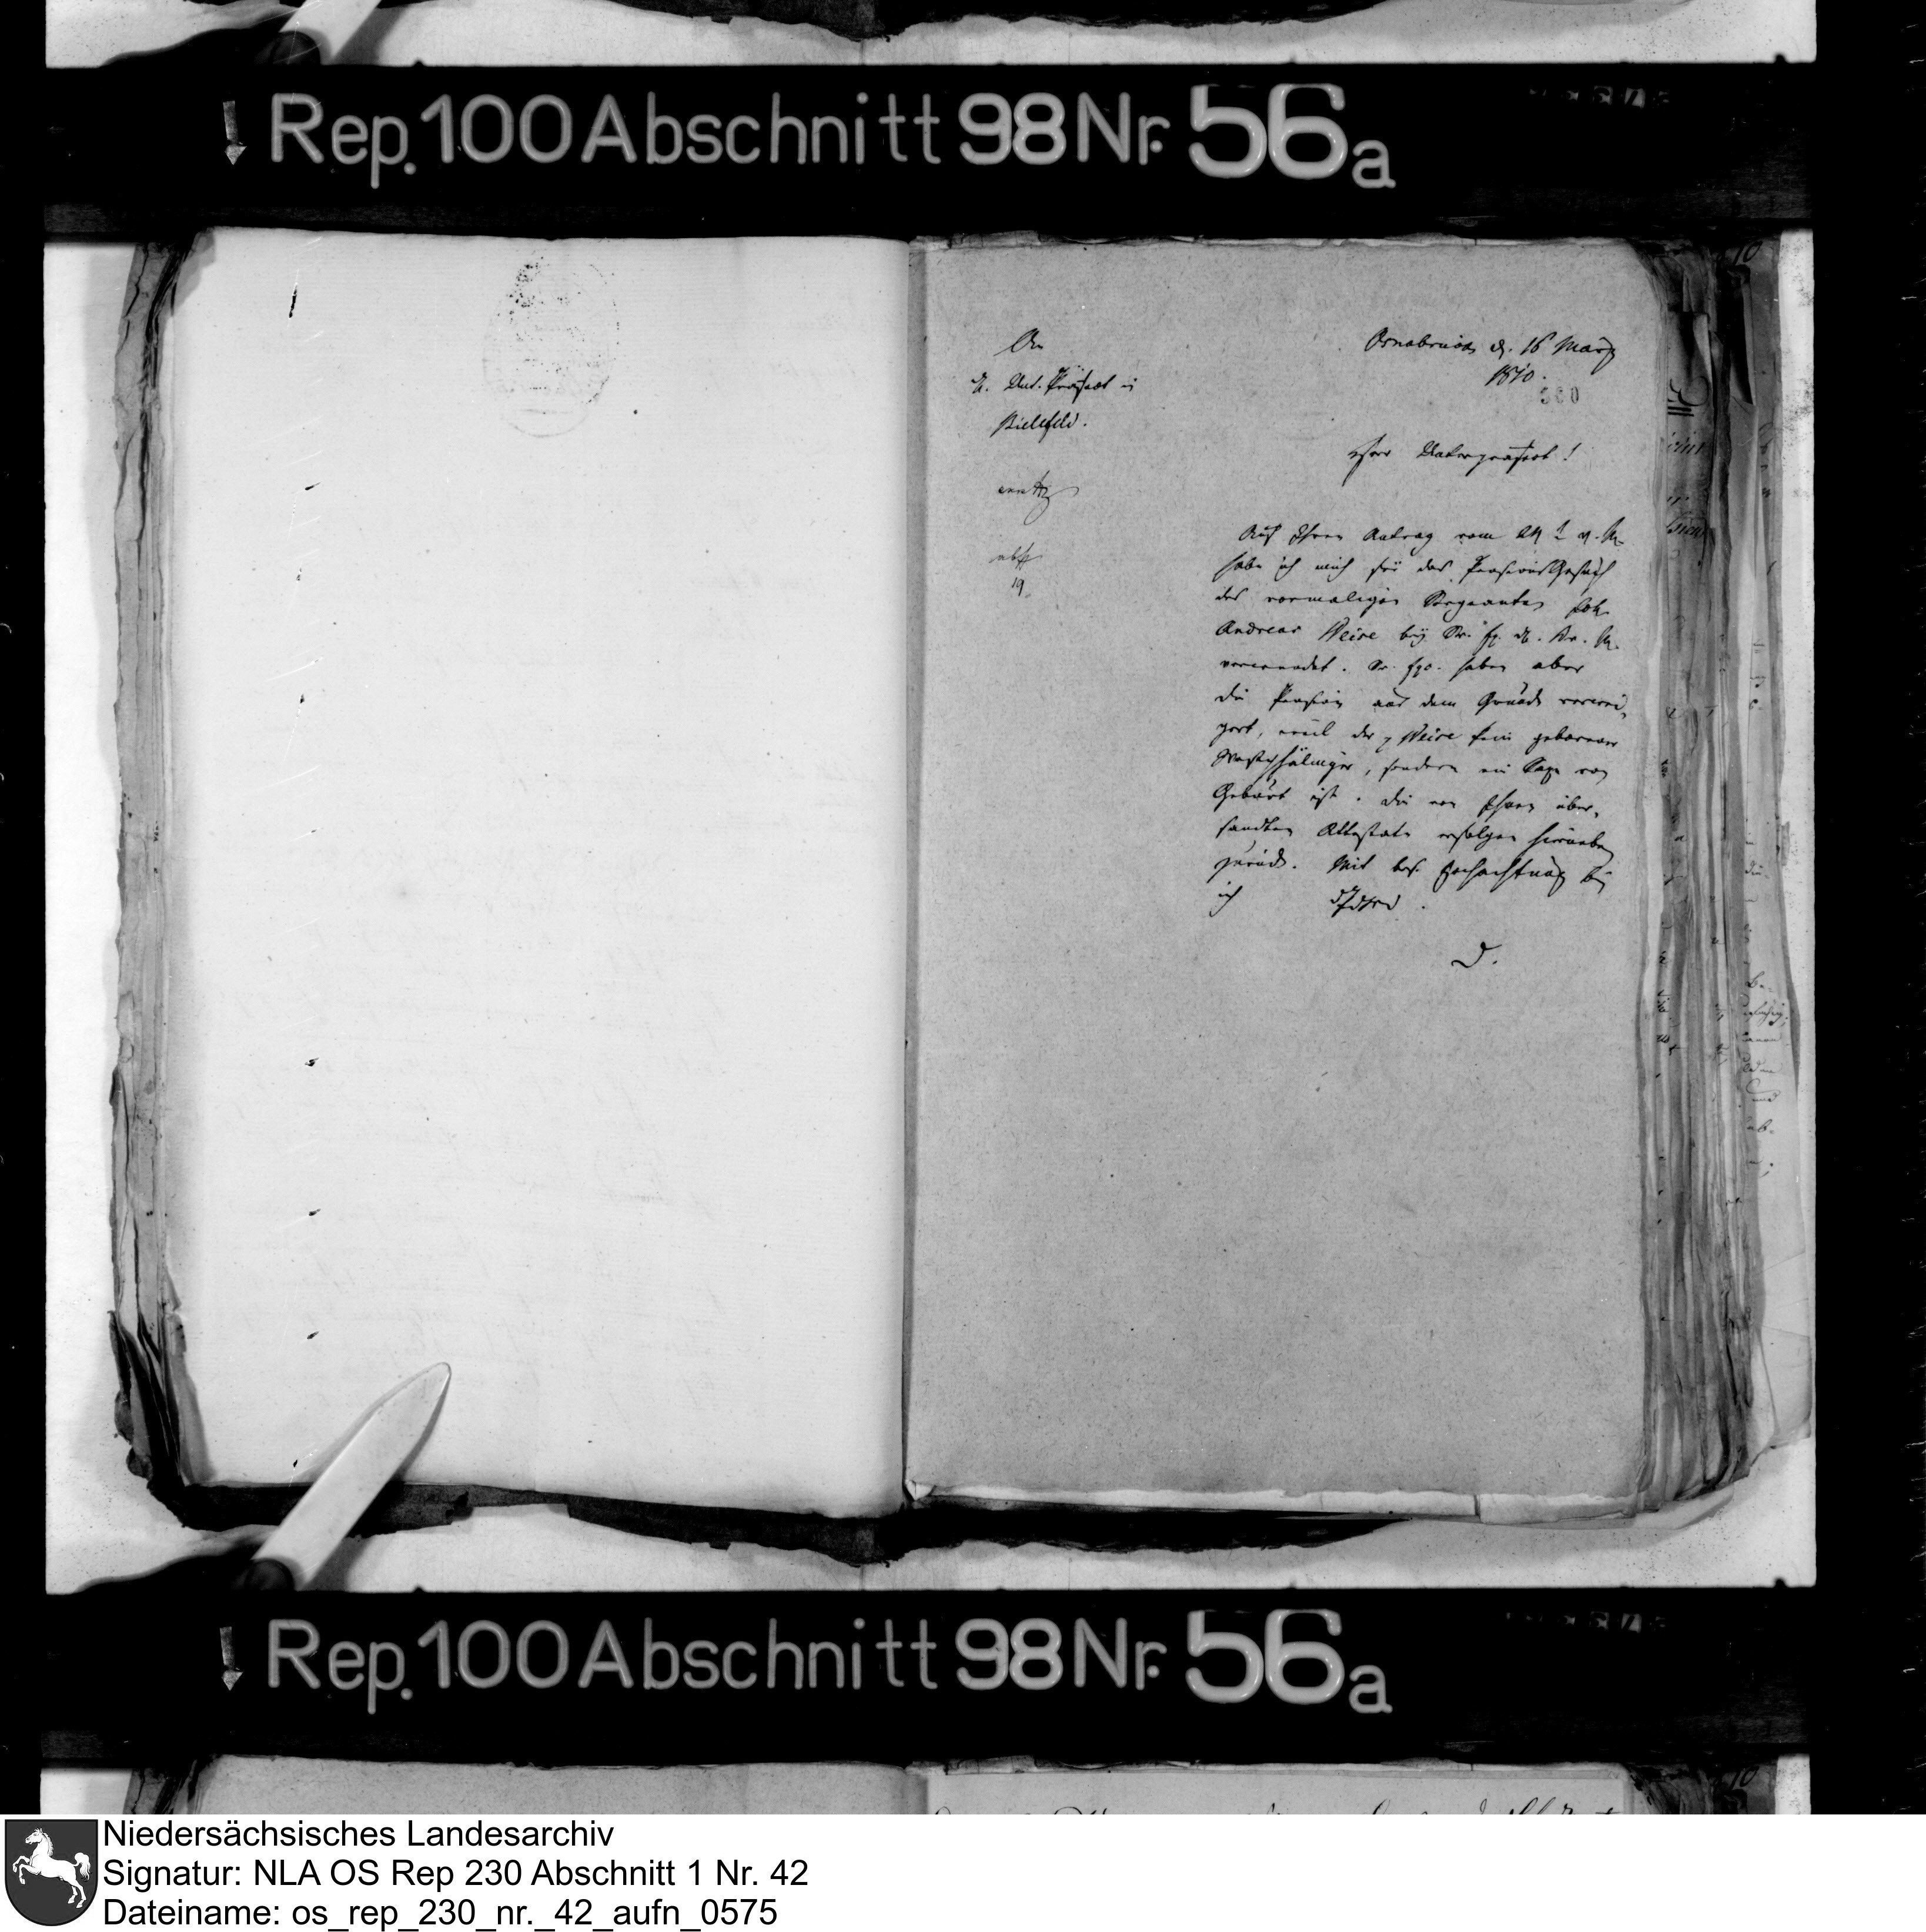 Rep. 100 Abschnitt 98 Nr. 56a
An
d. Unt. Präfect in
Bielefeld.
Osnabrück d. 16 März
1810.
330
Herr Unterpräfect!
Auf Ihren Antrag vom v. M.
habe ich mich für das Pensions Gesuch
des vormaligen Sergeanten Joh.
Andreas Weise bey Sr. d. M.
verwendet. Sr. Exc. haben aber
die Pension aus dem Grunde verwei-
gert, weil der p Weise kein geborner
Westphälinger, sondern ein Sachse von
Geburt ist. Die von Ihnen über-
sandten Atteste erfolgen hierneben
zurück. Mit bes. Hochachtung bin
ich
D.
abg
19
Rep. 100 Abschnitt 98 Nr. 56a
Niedersächsisches Landesarchiv
Signatur: NLA OS Rep 230 Abschnitt 1 Nr. 42
Dateiname: os_rep_230_nr._42_aufn_0575